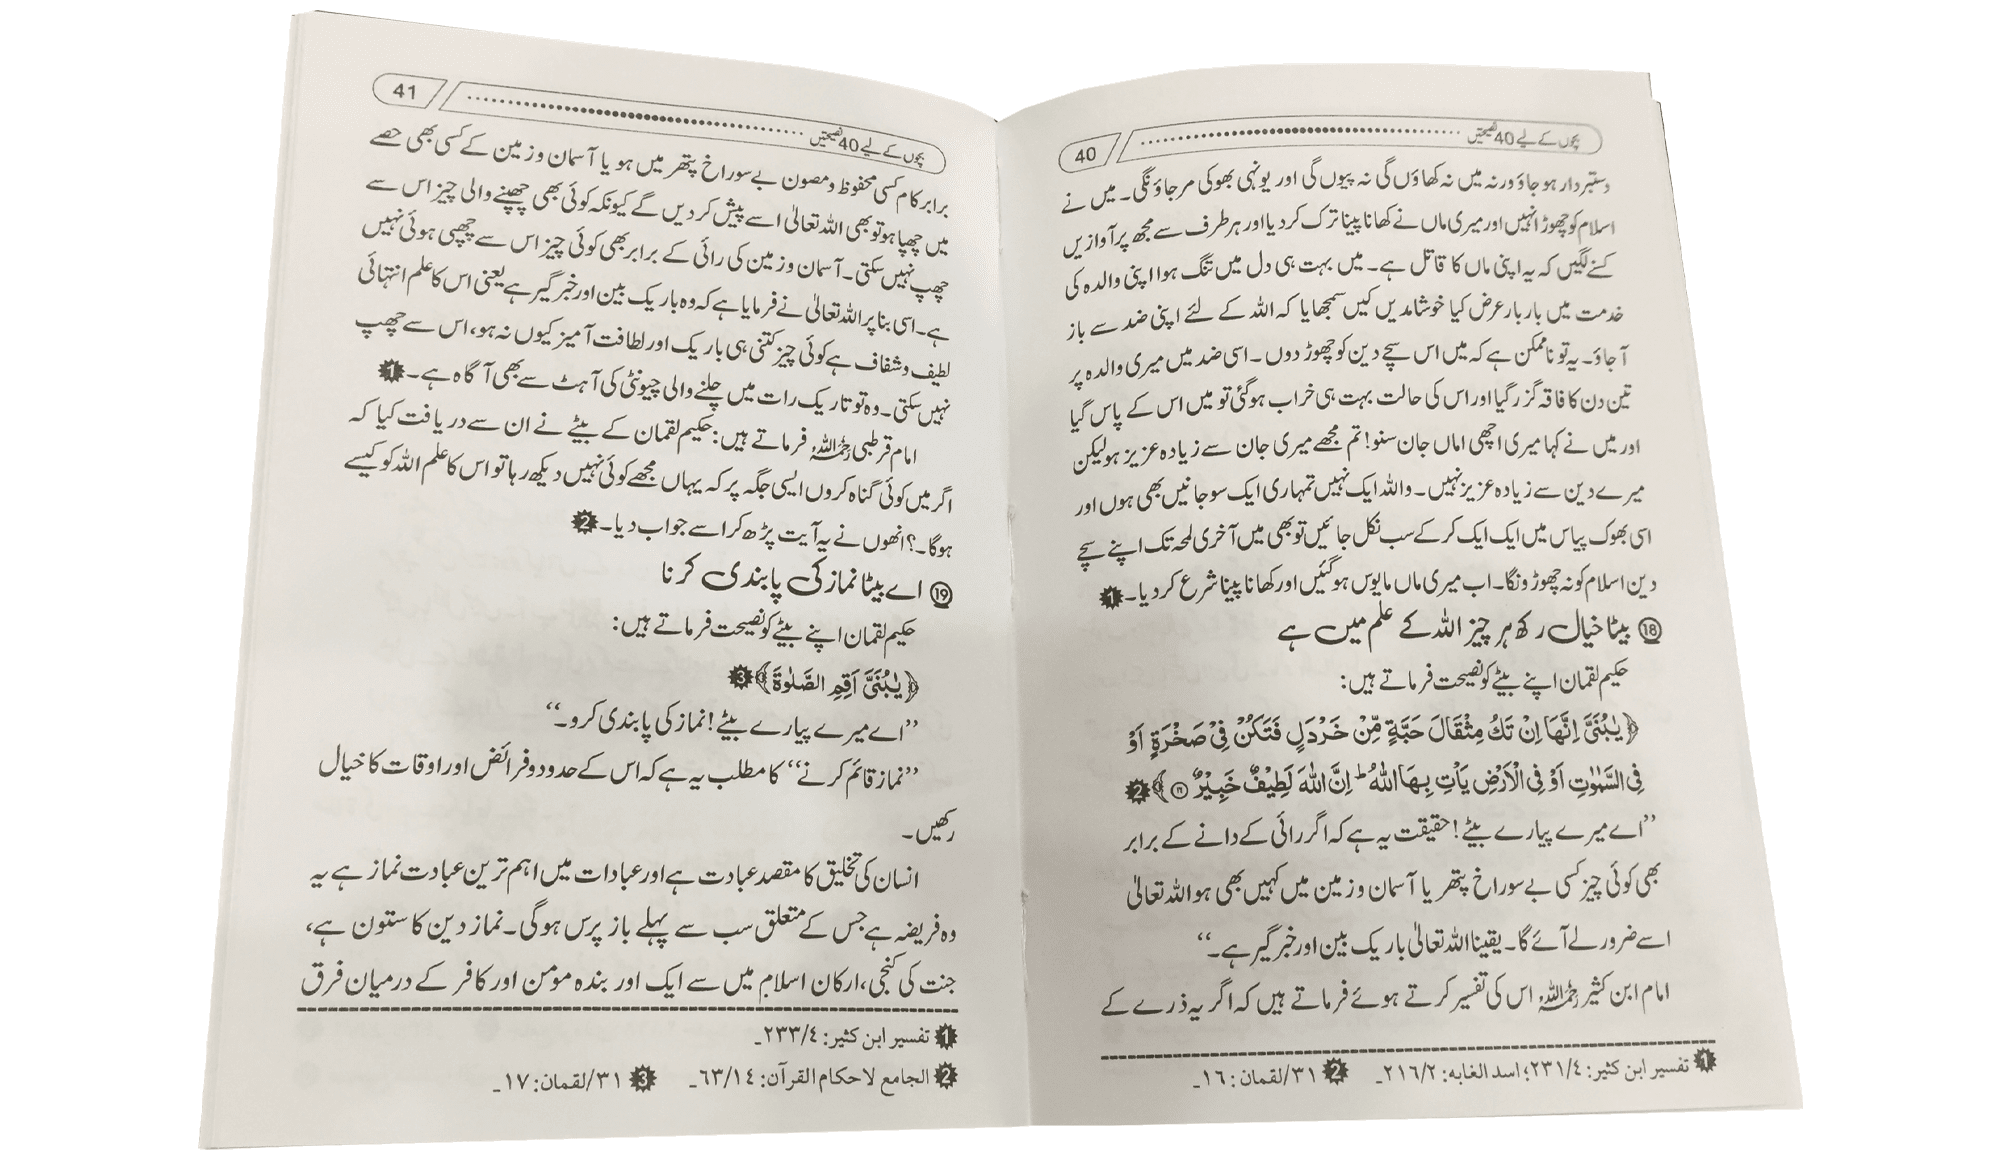 بچوں کے لیے 40 نصیحتیں 40
دستبردار ہو جاؤ ورنہ میں نہ کھاؤں گی نہ پیوں گی اور یونہی بھوکی مر جاؤنگی۔ میں نے
اسلام کو چھوڑا نہیں اور میری ماں نے کھانا پینا ترک کر دیا اور ہر طرف سے مجھ پر آوازیں
کسنے لگیں کہ یہ اپنی ماں کا قاتل ہے۔ میں بہت ہی دل میں تنگ ہوا اپنی والدہ کی
خدمت میں بار بار عرض کیا خوشامدیں کیں سمجھایا کہ اللہ کے لئے اپنی ضد سے باز
آ جاؤ۔ یہ تو ناممکن ہے کہ میں اس سچے دین کو چھوڑ دوں۔ اسی ضد میں میری والدہ پر
تین دن کا فاقہ گزر گیا اور اس کی حالت بہت ہی خراب ہو گئی تو میں اس کے پاس گیا
اور میں نے کہا میری اچھی اماں جان سنو! تم مجھے میری جان سے زیادہ عزیز ہو لیکن
میرے دین سے زیادہ عزیز نہیں۔ واللہ ایک نہیں تمہاری ایک سو جانیں بھی ہوں اور
اسی بھوک پیاس میں ایک ایک کر کے سب نکل جائیں تو بھی میں آخری لمحہ تک اپنے سچے
دین اسلام کو نہ چھوڑونگا۔ اب میری ماں مایوس ہو گئیں اور کھانا پینا شرع کر دیا۔ 1
18 بیٹا خیال رکھ ہر چیز اللہ کے علم میں ہے
حکیم لقمان اپنے بیٹے کو نصیحت فرماتے ہیں:
﴿يٰبُنَيَّ اِنَّهَا اِنْ تَكُ مِثْقَالَ حَبَّةٍ مِّنْ خَرْدَلٍ فَتَكُنْ فِيْ صَخْرَةٍ اَوْ
فِي السَّمٰوٰتِ اَوْ فِي الْاَرْضِ يَاْتِ بِهَا اللّٰهُ ؕ اِنَّ اللّٰهَ لَطِيْفٌ خَبِيْرٌ ۱۶﴾ 2
’’اے میرے پیارے بیٹے! حقیقت یہ ہے کہ اگر رائی کے دانے کے برابر
بھی کوئی چیز کسی بے سوراخ پتھر یا آسمان و زمین میں کہیں بھی ہو اللہ تعالیٰ
اسے ضرور لے آئے گا۔ یقینا اللہ تعالیٰ باریک بین اور خبر گیر ہے۔‘‘
امام ابن کثیر رحمہ اللہ اس کی تفسیر کرتے ہوئے فرماتے ہیں کہ اگر یہ ذرے کے
1 تفسیر ابن کثیر: ٢٣١/٤؛ اسد الغابه: ٢١٦/٢۔ 2 ٣١/لقمان: ١٦۔
بچوں کے لیے 40 نصیحتیں 41
برابر کام کسی محفوظ و مصون بے سوراخ پتھر میں ہو یا آسمان و زمین کے کسی بھی حصے
میں چھپا ہو تو بھی اللہ تعالیٰ اسے پیش کر دیں گے کیونکہ کوئی بھی چھپنے والی چیز اس سے
چھپ نہیں سکتی۔ آسمان و زمین کی رائی کے برابر بھی کوئی چیز اس سے چھپی ہوئی نہیں
ہے۔ اسی بنا پر اللہ تعالیٰ نے فرمایا ہے کہ وہ باریک بین اور خبر گیر ہے یعنی اس کا علم انتہائی
لطیف و شفاف ہے کوئی چیز کتنی ہی باریک اور لطافت آمیز کیوں نہ ہو، اس سے چھپ
نہیں سکتی۔ وہ تو تاریک رات میں چلنے والی چیونٹی کی آہٹ سے بھی آگاہ ہے۔ 1
امام قرطبی رحمہ اللہ فرماتے ہیں: حکیم لقمان کے بیٹے نے ان سے دریافت کیا کہ
اگر میں کوئی گناہ کروں ایسی جگہ پر کہ یہاں مجھے کوئی نہیں دیکھ رہا تو اس کا علم اللہ کو کیسے
ہوگا۔؟ انھوں نے یہ آیت پڑھ کر اسے جواب دیا۔ 2
19 اے بیٹا نماز کی پابندی کرنا
حکیم لقمان اپنے بیٹے کو نصیحت فرماتے ہیں:
﴿يٰبُنَيَّ اَقِمِ الصَّلٰوةَ﴾ 3
’’اے میرے پیارے بیٹے! نماز کی پابندی کرو۔‘‘
’’نماز قائم کرنے‘‘ کا مطلب یہ ہے کہ اس کے حدود و فرائض اور اوقات کا خیال
رکھیں۔
انسان کی تخلیق کا مقصد عبادت ہے اور عبادات میں اہم ترین عبادت نماز ہے یہ
وہ فریضہ ہے جس کے متعلق سب سے پہلے باز پرس ہوگی۔ نماز دین کا ستون ہے،
جنت کی کنجی، ارکان اسلام میں سے ایک اور بندہ مومن اور کافر کے درمیان فرق
1 تفسیر ابن کثیر: ٢٣٣/٤۔
2 الجامع لاحکام القرآن: ٦٣/١٤۔ 3 ٣١/لقمان: ١٧۔